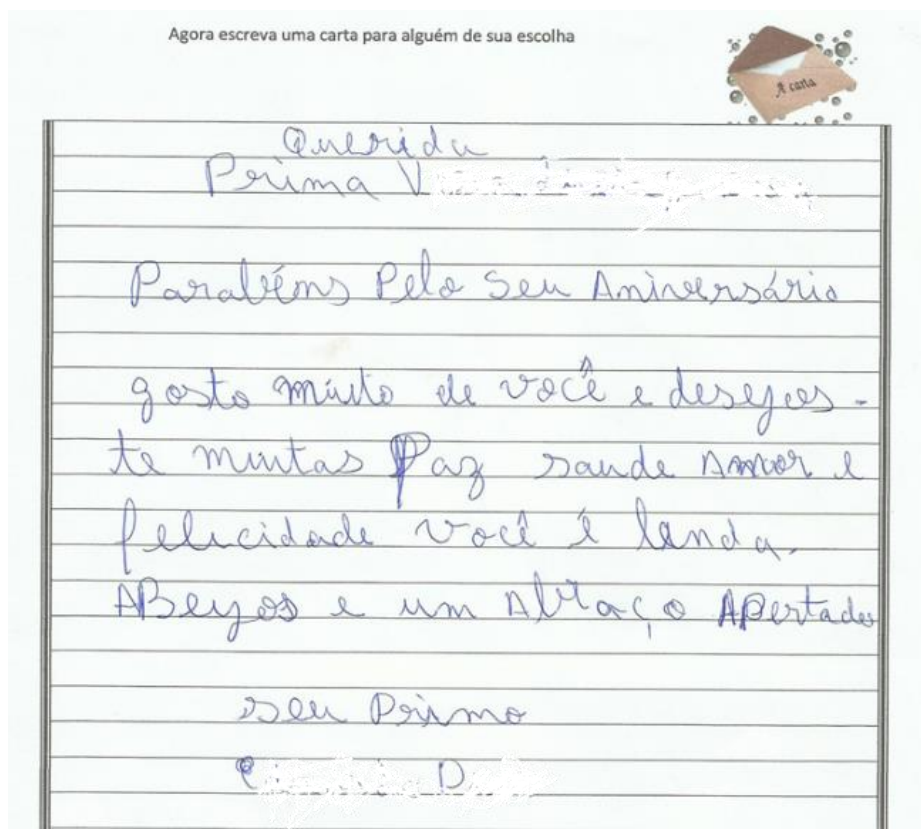 Agora escreva uma carta para alguém de sua escolha
A carta
Querida
Prima V
Parabéns Pelo Seu Aniversário
gosto muito de você e desejos-
te muitas Paz saude Amor e
felicidade você é linda.
ABeyos e um Abraço Apertado
seu Primo
D